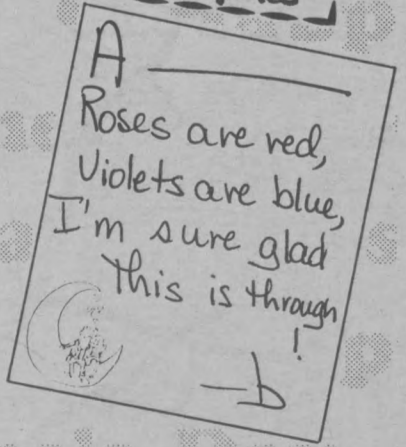 A
Roses are red,
Violets are blue,
I'm sure glad
this is through
!
—b